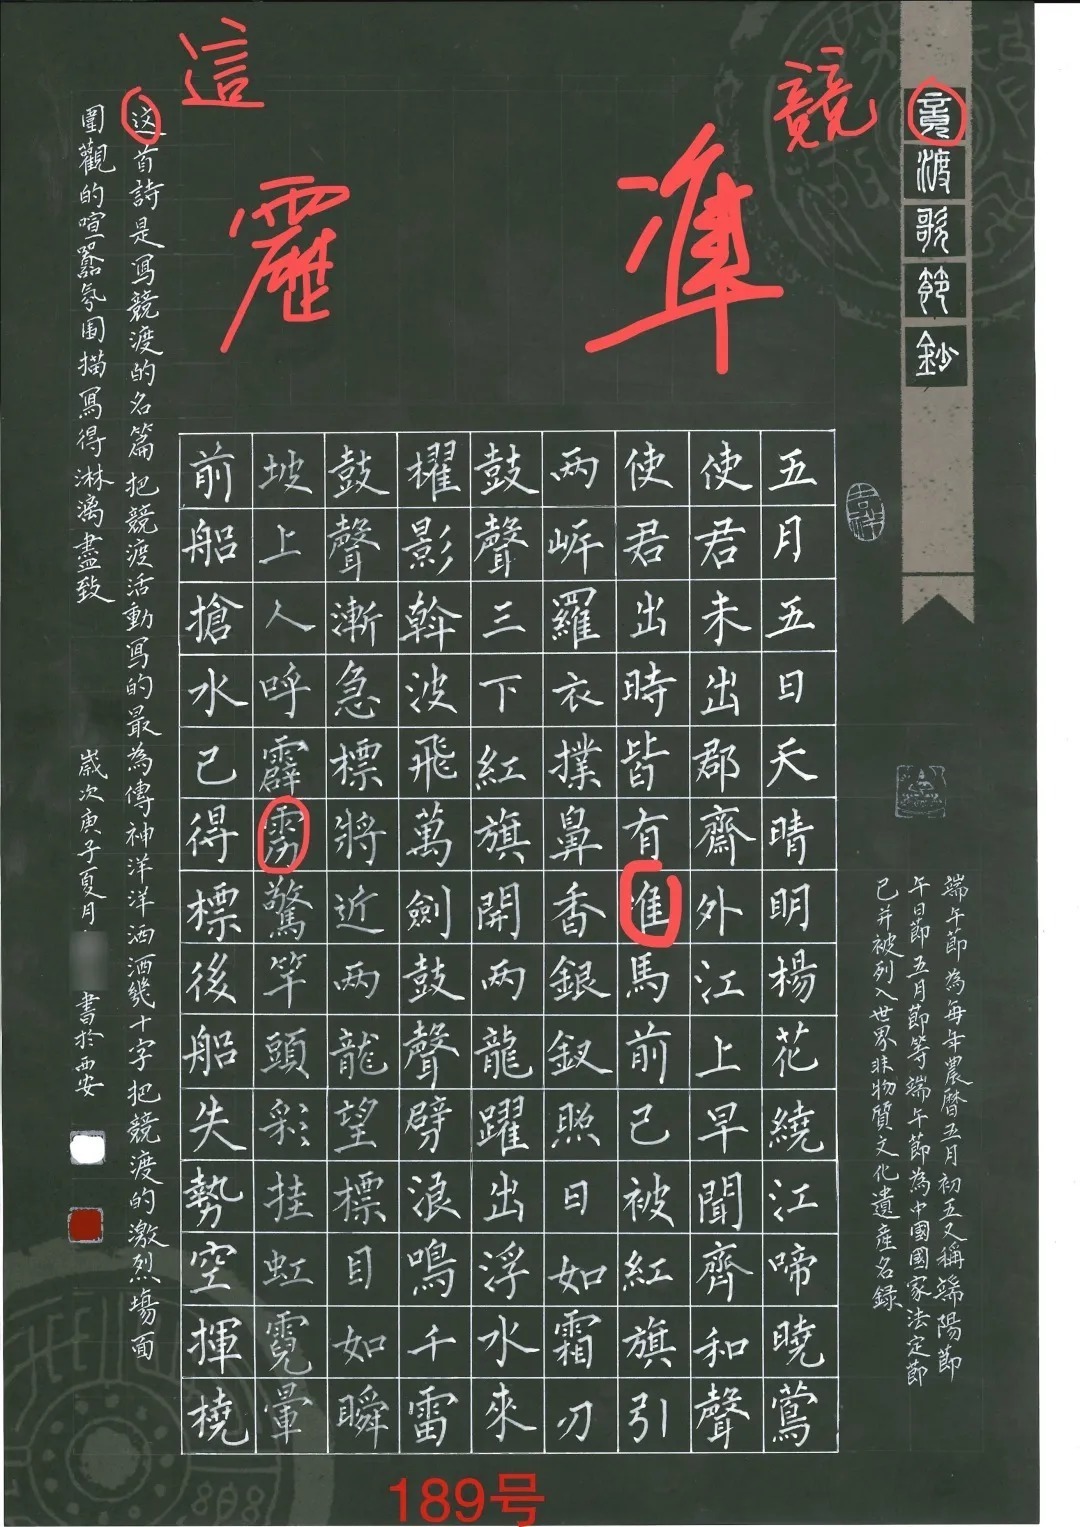 競
準
靂
這
竟渡歌節鈔
吉祥
端午節為每年農曆五月初五又稱端陽節
午日節五月節等端午節為中國國家法定節
已并被列入世界非物質文化遺產名錄
五月五日天晴明楊花繞江啼曉鶯
使君未出郡齋外江上早聞齊和聲
使君出時皆有准馬前已被紅旗引
两岍羅衣撲鼻香銀釵照日如霜刃
鼓聲三下紅旗開两龍躍出浮水來
櫂影斡波飛萬劍鼓聲劈浪鳴千雷
鼓聲漸急標將近两龍望標目如瞬
坡上人呼霹雳驚竿頭彩挂虹霓暈
前船搶水已得標後船失勢空揮橈
这首詩是寫競渡的名篇把競渡活動寫的最為傳神洋洋洒洒幾十字把競渡的激烈塲面
圍觀的喧囂氛围描寫得淋漓盡致
歲次庚子夏月 書於西安
189号